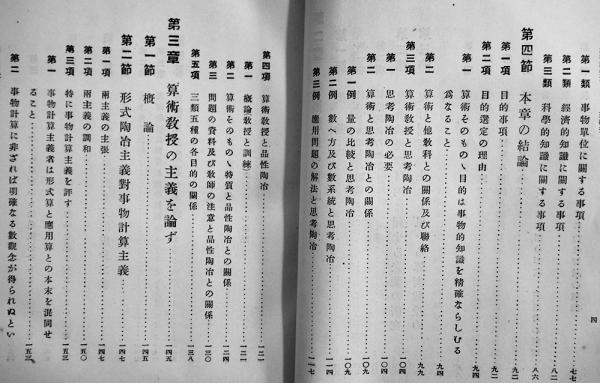 四
第一類 事物單位に關する事項………七七
第二類 經濟的知識に關する事項………八二
第三類 科學的知識に關する事項………八六
第四節 本章の結論………九二
第一項 目的事項………九二
第二項 目的選定の理由………九四
第一 算術そのもの丶目的は事物的知識を精確ならしむる
爲なること………九四
第二 算術と他敎科との關係及び聯絡………九九
第三項 算術敎授と思考陶冶………
第一 思考陶冶の必要………
第二 算術と思考陶冶との關係………一〇四
第一例 量の比較と思考陶冶………一〇九
第二例 數へ方及び數系統と思考陶冶………
第三例 應用問題の解法と思考陶冶………一一七
第四項 算術敎授と品性陶冶………一二一
第一 概論(敎授と訓練)………一二一
第二 算術そのもの丶特質と品性陶冶との關係………一二四
第三 問題の資料及び敎師の注意と品性陶冶との關係………一三〇
第五項 三類五種の各目的の關係………一三八
第三章 算術敎授の主義を論ず………一四五
第一節 概論………一四五
第二節 形式陶冶主義對事物計算主義………一四七
第一項 兩主義の主張………一四七
第二項 兩主義の調和………一五〇
第三項 特に事物計算主義を評す………一五三
第一 事物計算主義者は形式算と應用算との本末を混同せ
ること………一五三
第二 事物計算に非ざれば明確なる數觀念が得られぬとい